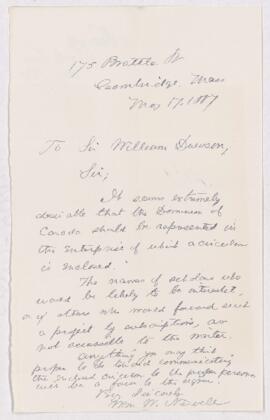 175 Brattle St
Cambridge, Mass
May 17. 1887
To Sir William Dawson,
Sir;
It seems extremely
desirable that the Dominion of
Canada should be represented in
the enterprise of which a circular
is enclosed.
The names of scholars who
would be likely to be interested,
or of others who would forward such
a project by subscription, are
not accessible to the writer.
Anything you may think
proper to do toward communicating
the enclosed circular to the proper persons
will be a favor to the signer.
Very sincerely
Wm. W. Newell